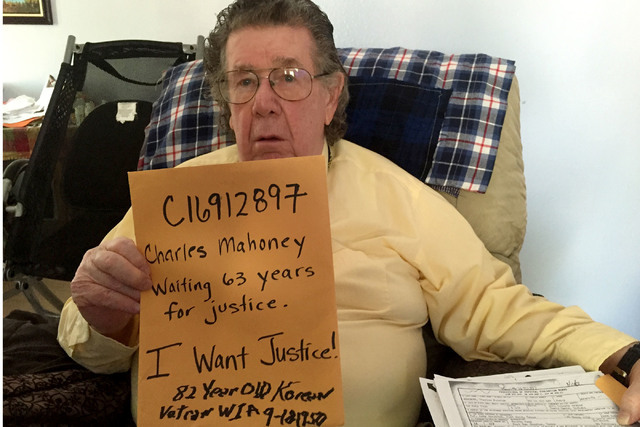 C16912897
Charles Mahoney
Waiting 63 years
for justice.
I Want Justice!
82 Year Old Korean
Vetran WIA